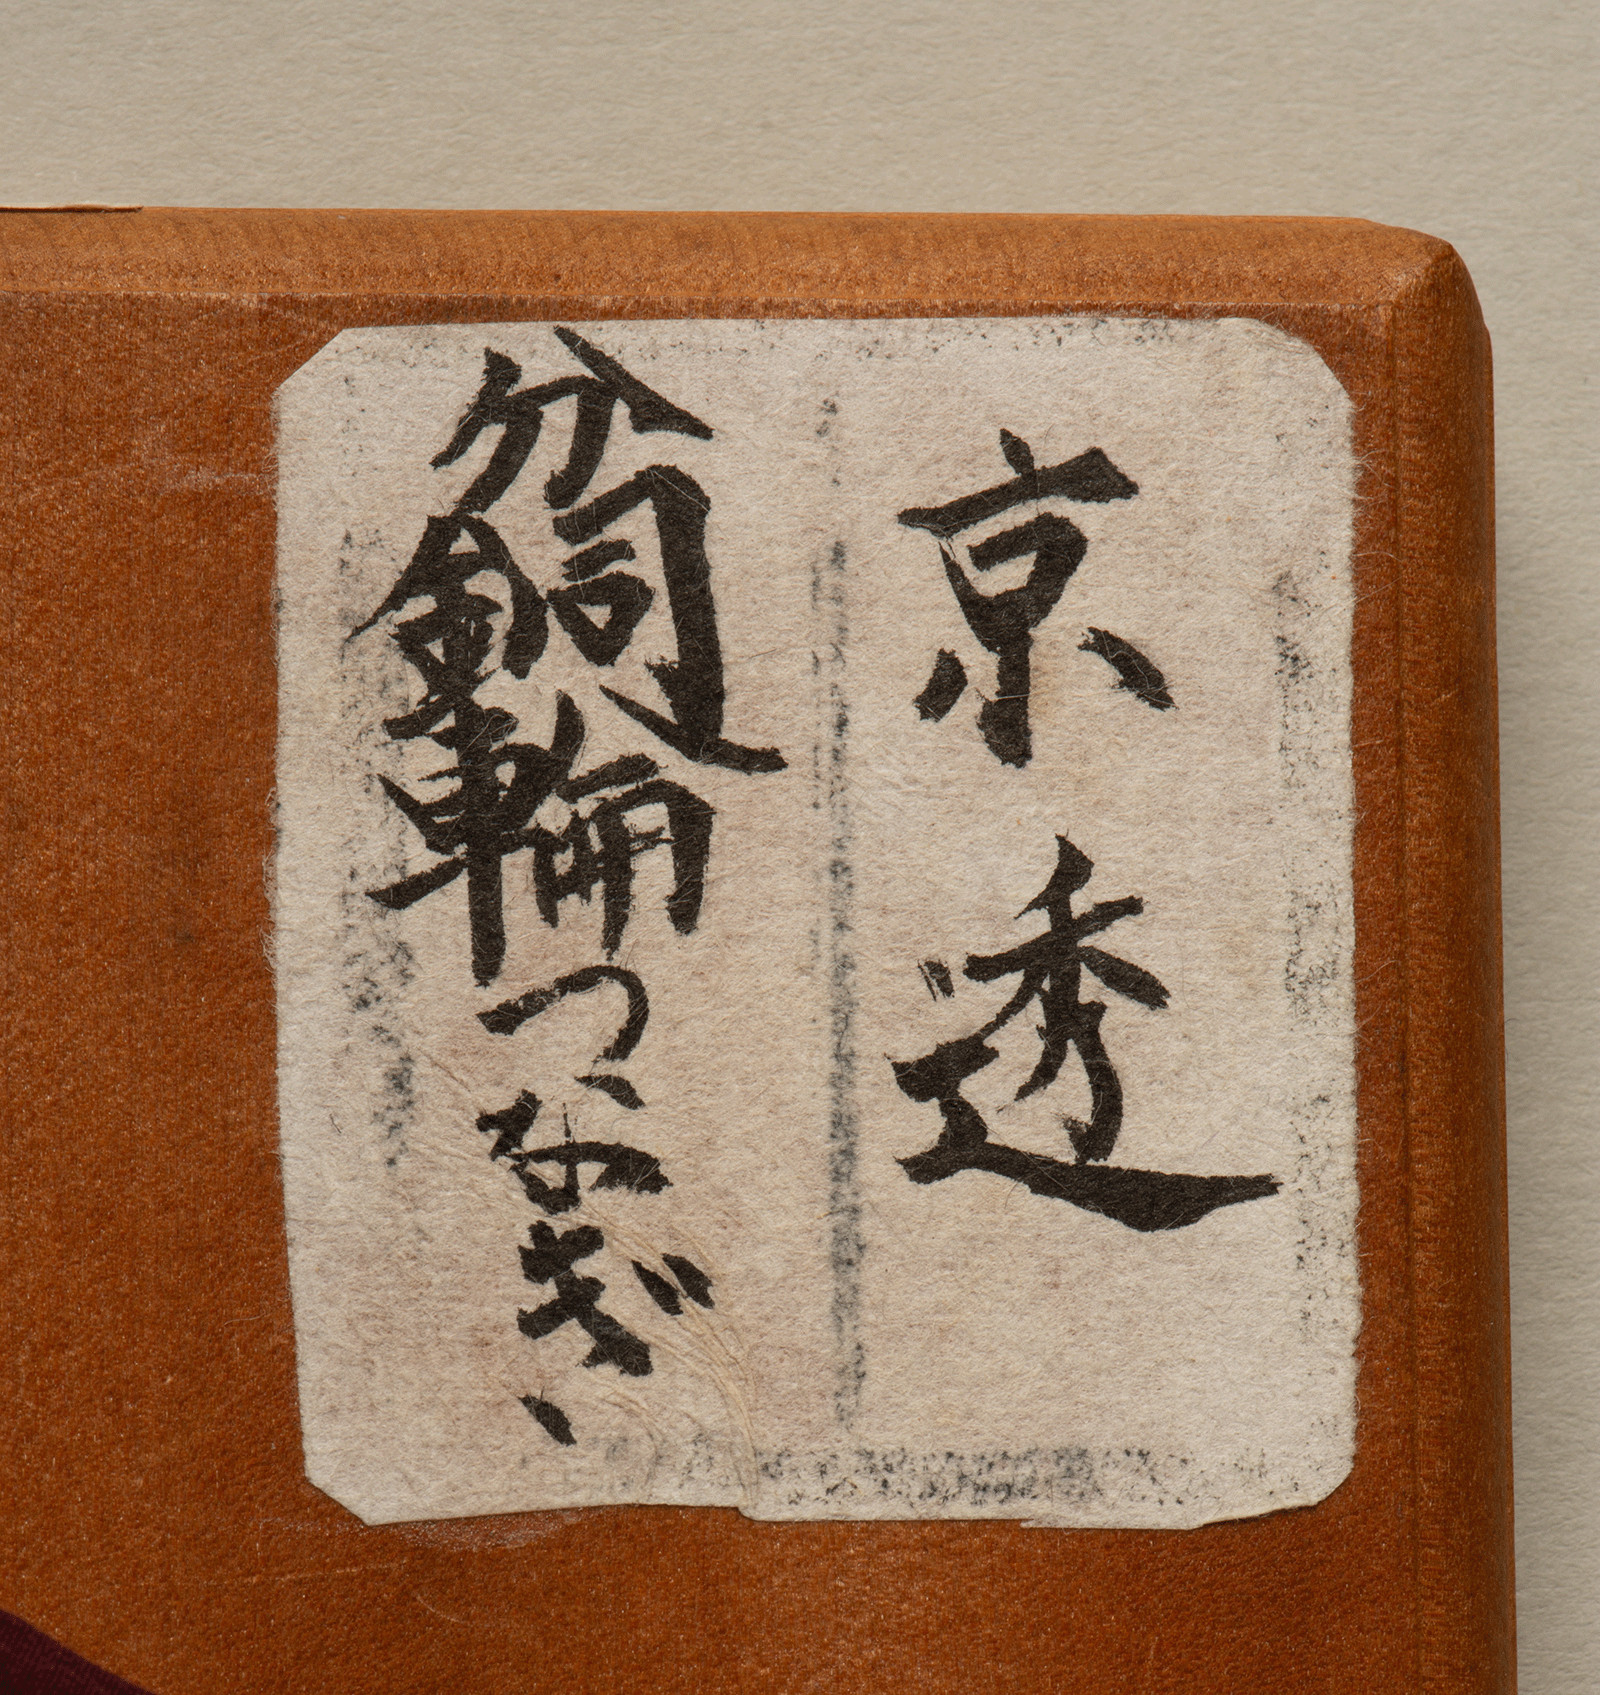 京透
分銅輪つなぎ、